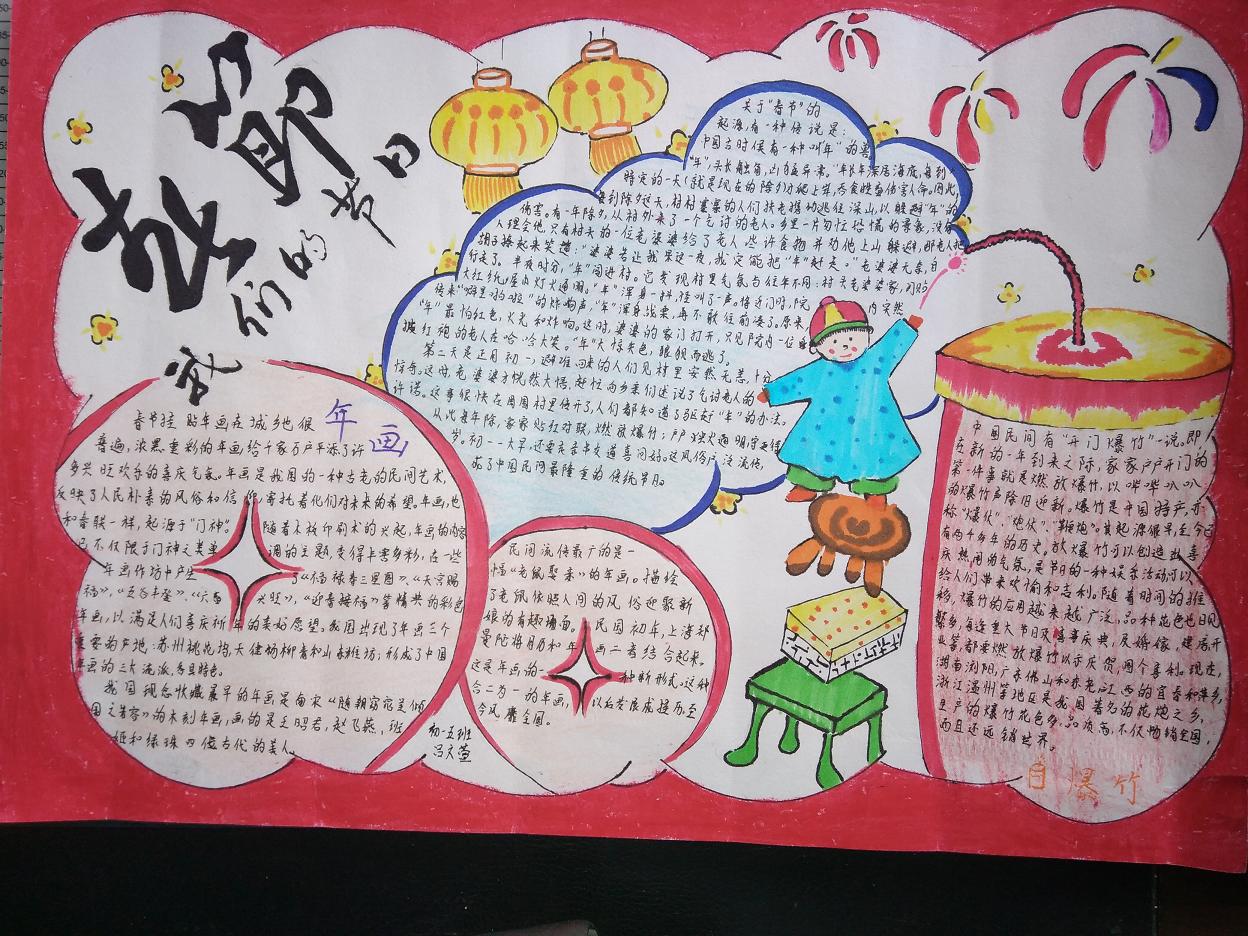 春节
我们的节日
关于“春节”的
起源,有一种传说是:
中国古时候有一种叫“年”的兽
“年”,头长触角,凶猛异常,“年”长年深居海底,每到
特定的一天(就是现在的除夕)才爬上岸,吞食牲畜伤害人命。因此,
每到除夕这天,村村寨寨的人们扶老携幼逃往深山,以躲避“年”的
伤害。有一年除夕,从村外来了一个乞讨的老人。乡里一片匆忙恐慌的景象,没有
人理会他,只有村头的一位老婆婆给了老人些许食物并劝他上山躲避,那老人把
胡子捋起来笑道:“婆婆若让我呆这一夜,我定能把“年”赶走。”老婆婆无奈,自
行走了。半夜时分,“年”闯进村。它发现村里气氛与往年不同:村头老婆婆家,门贴
大红纸,屋内灯火通明。“年”浑身一抖,怪叫了一声。将近门时,院内突然
传来“噼里啪啦”的炸响声,“年”浑身战栗,再不敢往前凑了。原来,
“年”最怕红色,火光和炸响。这时,婆婆的家门打开,只见院内一位身
披红袍的老人在哈哈大笑。“年”大惊失色,狼狈而逃了。
第二天是正月初一,避难回来的人们见村里安然无恙,十分
惊奇。这时,老婆婆才恍然大悟,赶忙向乡亲们述说了乞讨老人的
许诺。这事很快在周围村里传开了,人们都知道了驱赶“年”的办法。
从此每年除夕,家家贴红对联,燃放爆竹;户户烛火通明,守更待
岁。初一一大早,还要走亲串友道喜问好。这风俗广泛流传,
成了中国民间最隆重的传统节日。
年画
春节挂贴年画在城乡也很
普遍,浓黑重彩的年画给千家万户平添了许
多兴旺欢乐的喜庆气氛。年画是我国的一种古老的民间艺术,
反映了人民朴素的风俗和信仰,寄托着他们对未来的希望。年画,也
和春联一样,起源于“门神”。随着木板印刷术的兴起,年画的内容
已不仅限于门神之类单调的主题,变得丰富多彩,在一些
年画作坊中产生了《福禄寿三星图》、《天官赐
福》、《五谷丰登》、《六畜兴旺》、《迎春接福》等精典的彩色
年画,以满足人们喜庆祈年的美好愿望。我国出现了年画三个
重要的产地:苏州桃花坞,天津杨柳青和山东潍坊;形成了中国
年画的三大流派,各具特色。
我国现今收藏最早的年画是南宋《随朝窈窕呈倾
国之芳容》的木刻年画,画的是王昭君、赵飞燕、班
姬和绿珠四位古代的美人。
民间流传最广的是一
幅“老鼠娶亲”的年画。描绘
了老鼠依照人间的风俗迎娶新
娘的有趣场面。民国初年,上海郑
曼陀将月历和年画二者结合起来。
这是年画的一种新形式。这种
合二为一的年画,以后发展成挂历,至
今风靡全国。
初一五班
吕文萱
中国民间有“开门爆竹”一说,即
在新的一年到来之际,家家户户开门的
第一件事就是燃放爆竹,以哔哔叭叭
的爆竹声除旧迎新。爆竹是中国特产,亦
称“爆仗”、“炮仗”、“鞭炮”。其起源很早,至今已
有两千多年的历史。放爆竹可以创造出喜
庆热闹的气氛,是节日的一种娱乐活动,可以
给人们带来欢愉和吉利。随着时间的推
移,爆竹的应用越来越广泛,品种花色也日见
繁多,每逢重大节日及喜事庆典,及婚嫁、建房、开
业等,都要燃放爆竹以示庆贺,图个吉利。现在,
湖南浏阳,广东佛山和东尧,江西的宜春和萍乡,
浙江温州等地区是我国著名的花炮之乡,
生产的爆竹花色多,品质高,不仅畅销全国,
而且还远销世界。
爆竹